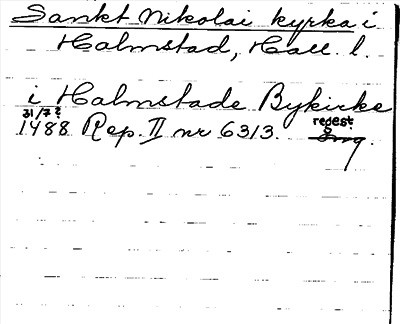 Sankt Nikolai kyrka i
Halmstad, Hall. l.
i Halmstade Bykirke
31/7 ?
1488 Rep. II nr 6313. regest